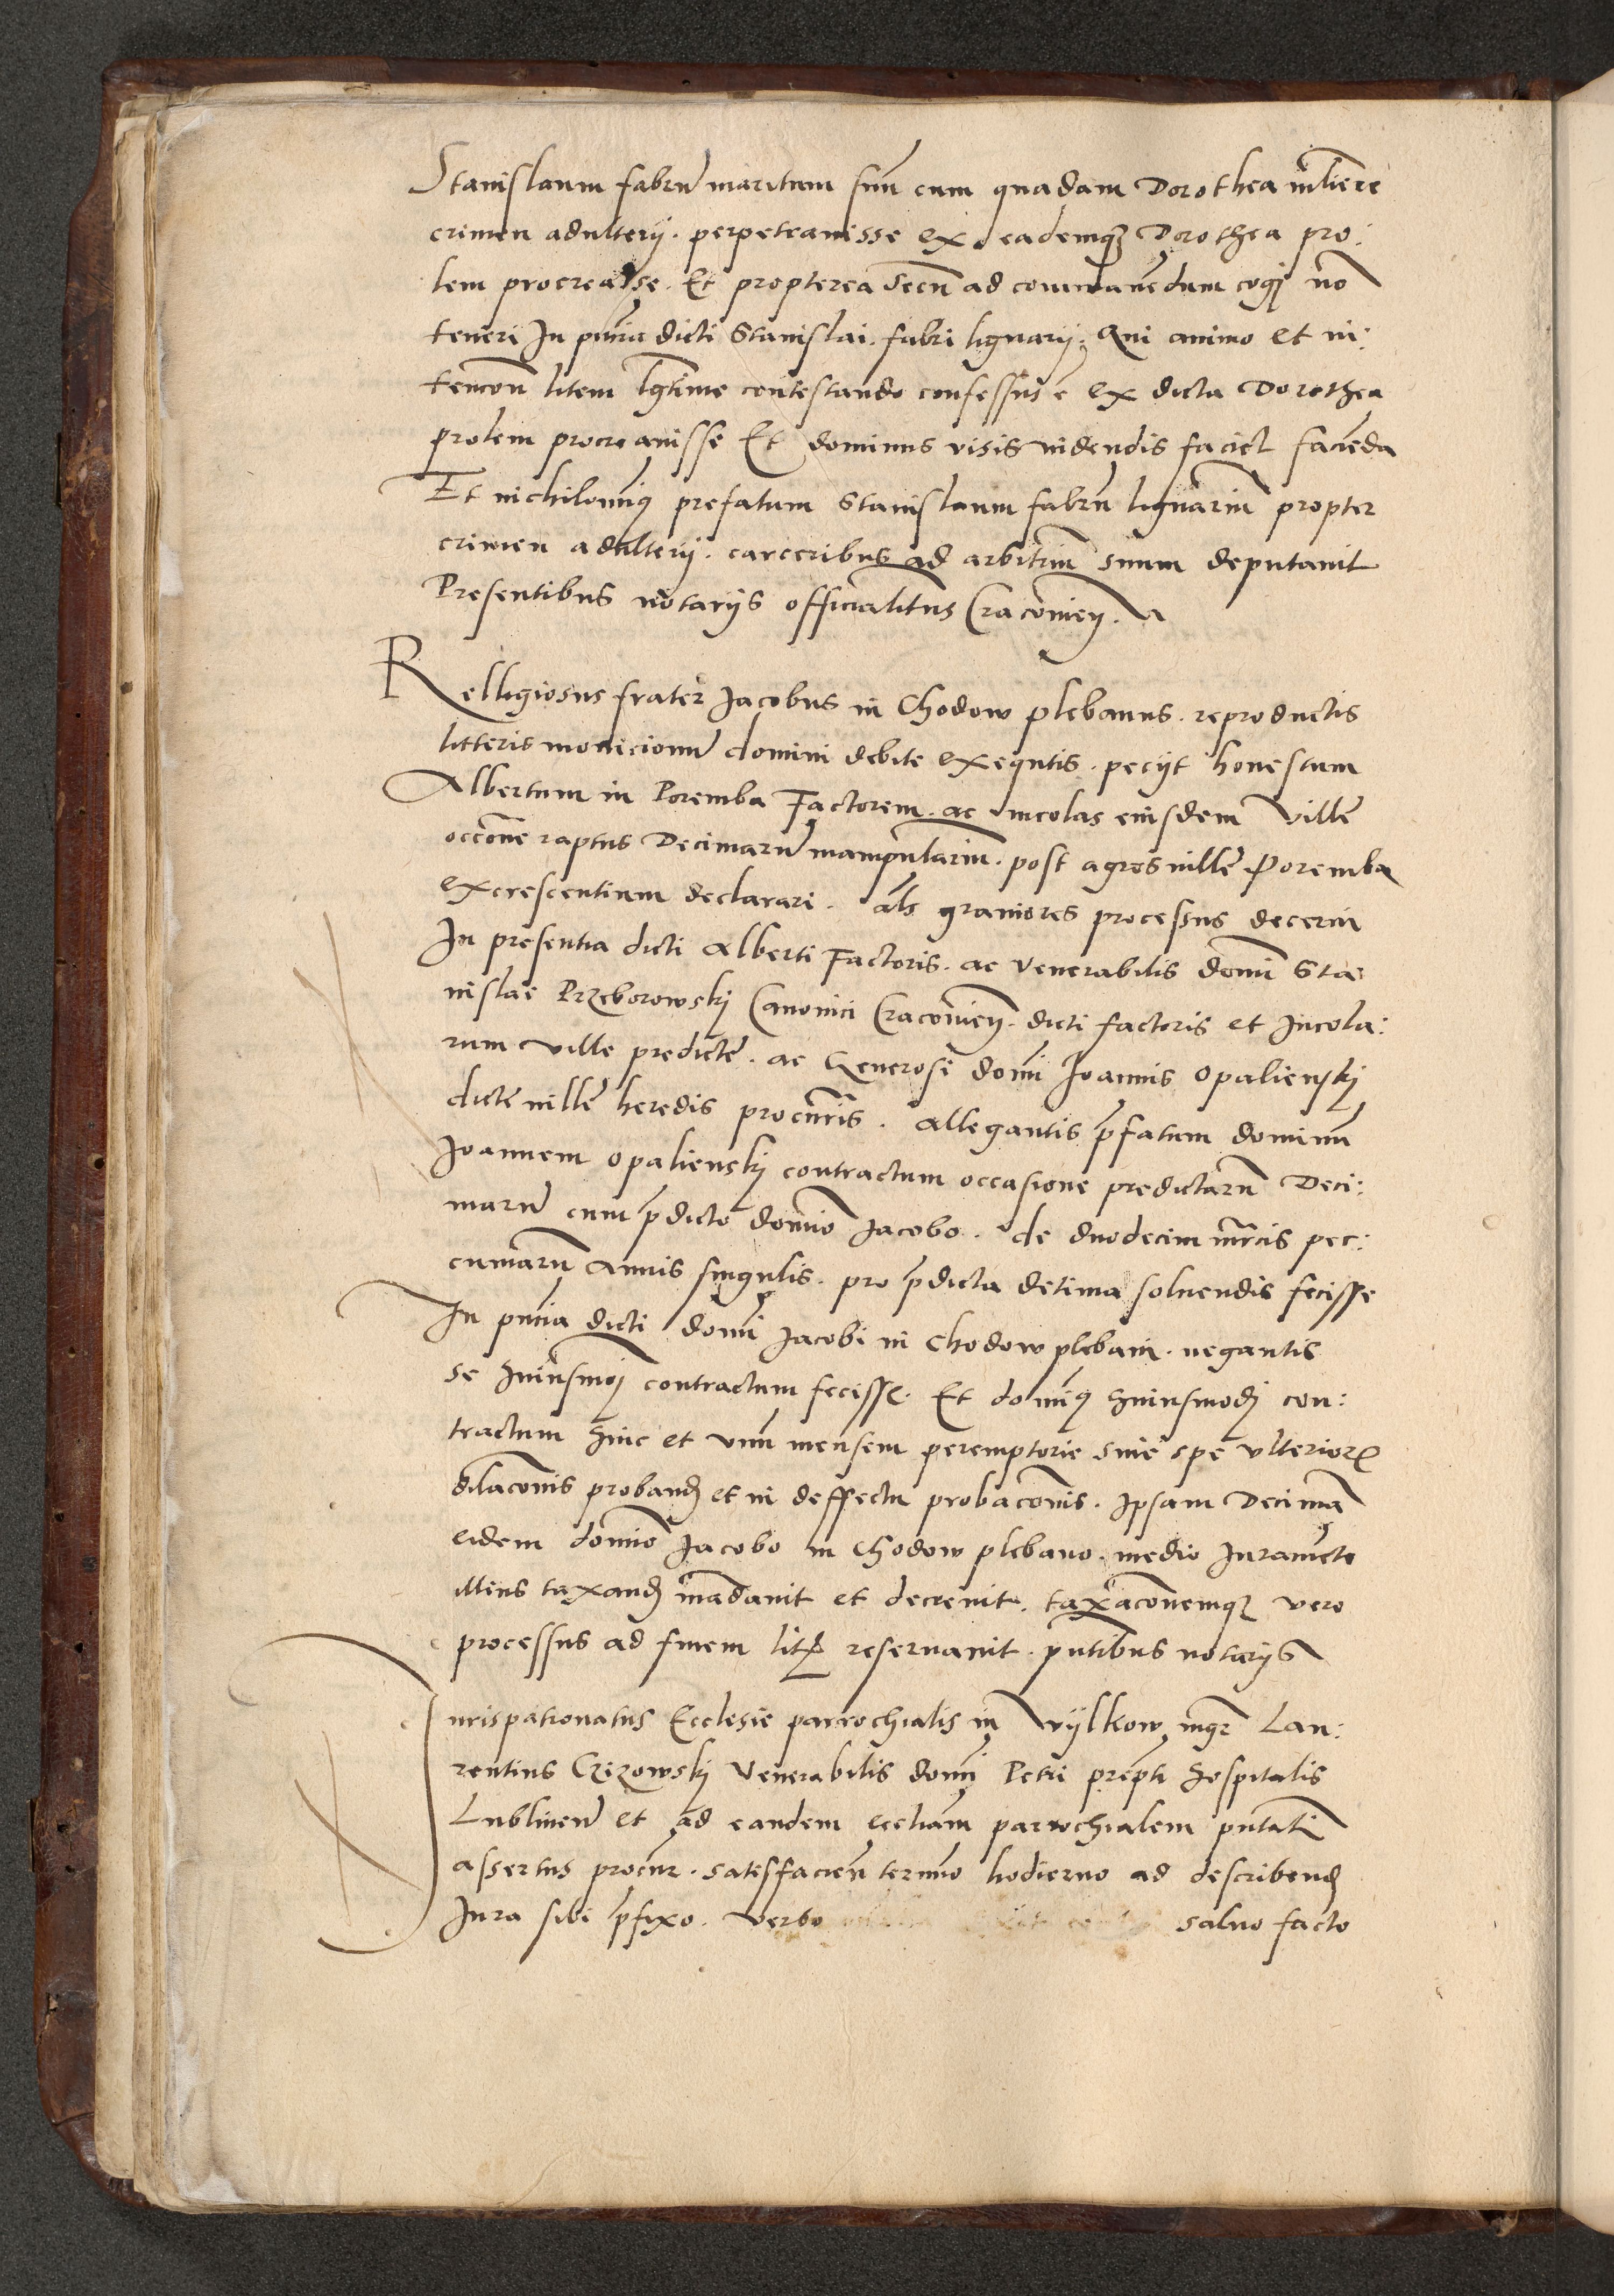 Stanislaum fabrū maritum suū cum quadam Dorothea mliere
crimen adulterij . perpetrauisse ex eademq3 Dorothea pro:
lem procreasse . Et propterea Secū ad commanēdum cogi nō
teneri In pñtia dicti Stanislai . fabri lignarij . Qui animo et in:
tencōn litem lgtime contestando confessus ē ex dicta Dorothea
prolem procreauisse Et dominus visis uidendis faciet faciēda
Et nichilomīꝰ prefatum Stanislaum fabrū lignariū propter
crimen adulterij . carceribus ad arbitriū suum deputauit
Presentibus notarijs officialitus Cracouieñ .
Relligiosus frater Jacobus in Chodow plebanus . reproductis
litteris monicionū domini debite exequtis . pecijt honestum
Albertum in Poremba Factorem . ac incolas eiusdem Ville
occōne raptus Decimarū manipulariū . post agros uille Poremba
excrescentium declarari . als grauiores processus decerni
In presentia dicti Alberti Factoris . ac Venerabilis domī Sta
nislae Przeborowskj Canonici Cracouieñ . dicti factoris et Incola:
rum Ville predicte . ac Generosi domī Joannis Opalienskj
dicte uille heredis procūris . Allegantis p̄fatum dominū
Joannem Opalienskj contractum occasione predictarū Deci:
marū cum p̄dicto domīo Jacobo . de duodecim mrcis pec:
cuniarū Annis singulis . pro p̄dicta decima soluendis fecisse
In pñtia dicti domī Jacobi in Chodow plebani . negantis
se huiusmoj contractum fecisse . Et domīꝰ huiusmodj con:
tractum hinc et vnū mensem peremptorie sine spe vlterior
dilacōnis proband et in deffectu probacōnis . Ipsam Decimā
eidem domīo Jacobo in Chodow plebano . medio Iuramēto
illius taxand mādauit et decreuit . taxacōnemq3 vero
processus ad finem lit reseruauit . pñtibus notarijs
Jurispatronatus Ecclesie parrochialis in Wylkow mgr Lau:
rentius Czizowskj Venerabilis domī Petri prepti hospitalis
Lublineñ et ad eandem eccliam parrochialem pñtati
assertus procur . satisfacieñ termīo hodierno ad describend
Iura sibi p̄fixo . verbo saluo facto